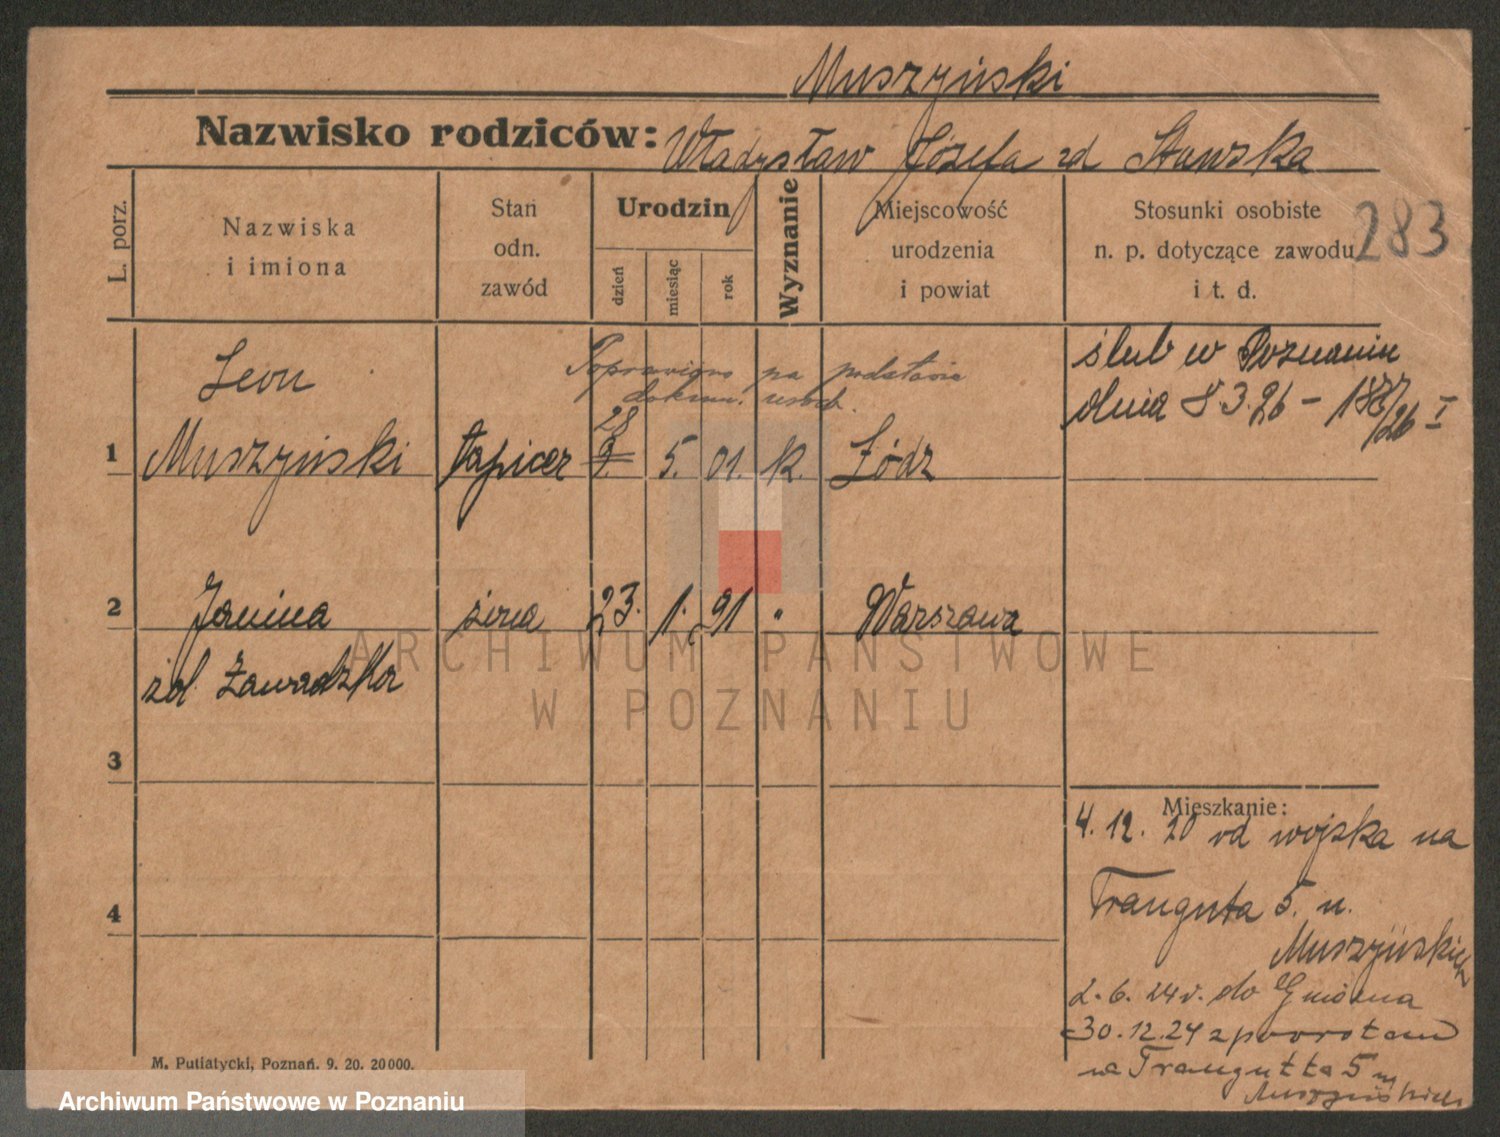 Muszyński
Nazwisko rodziców: Władysław Józefa zd Stawska
L. porz.
Nazwiska
i imiona
Stan
odn.
zawód
Urodzin
dzień
miesiąc
rok
Wyznanie
Miejscowość
urodzenia
i powiat
Stosunki osobiste
n. p. dotyczące zawodu
i t. d.
283
Poprawiono na podstawie
dokum. osob.
ślub w Poznaniu
dnia 8.3.26 - /26 I
Leon
28
1 Muszyński tapicer 9. 5. 01. K. Łódz
2 Janina żona 23. 1. 91 " Warszawa
zd. Zawadzka
ARCHIWUM PAŃSTWOWE
W POZNANIU
3
4
Mieszkanie:
4. 12. 20 od wojska na
Traugutta 5. u.
Muszyńskich
2. 6. 24 r. do Gniezna
30.12.24 z powrotem
na Traugutta 5 u
Muszyńskich
M. Putiatycki, Poznań. 9. 20. 20000.
Archiwum Państwowe w Poznaniu